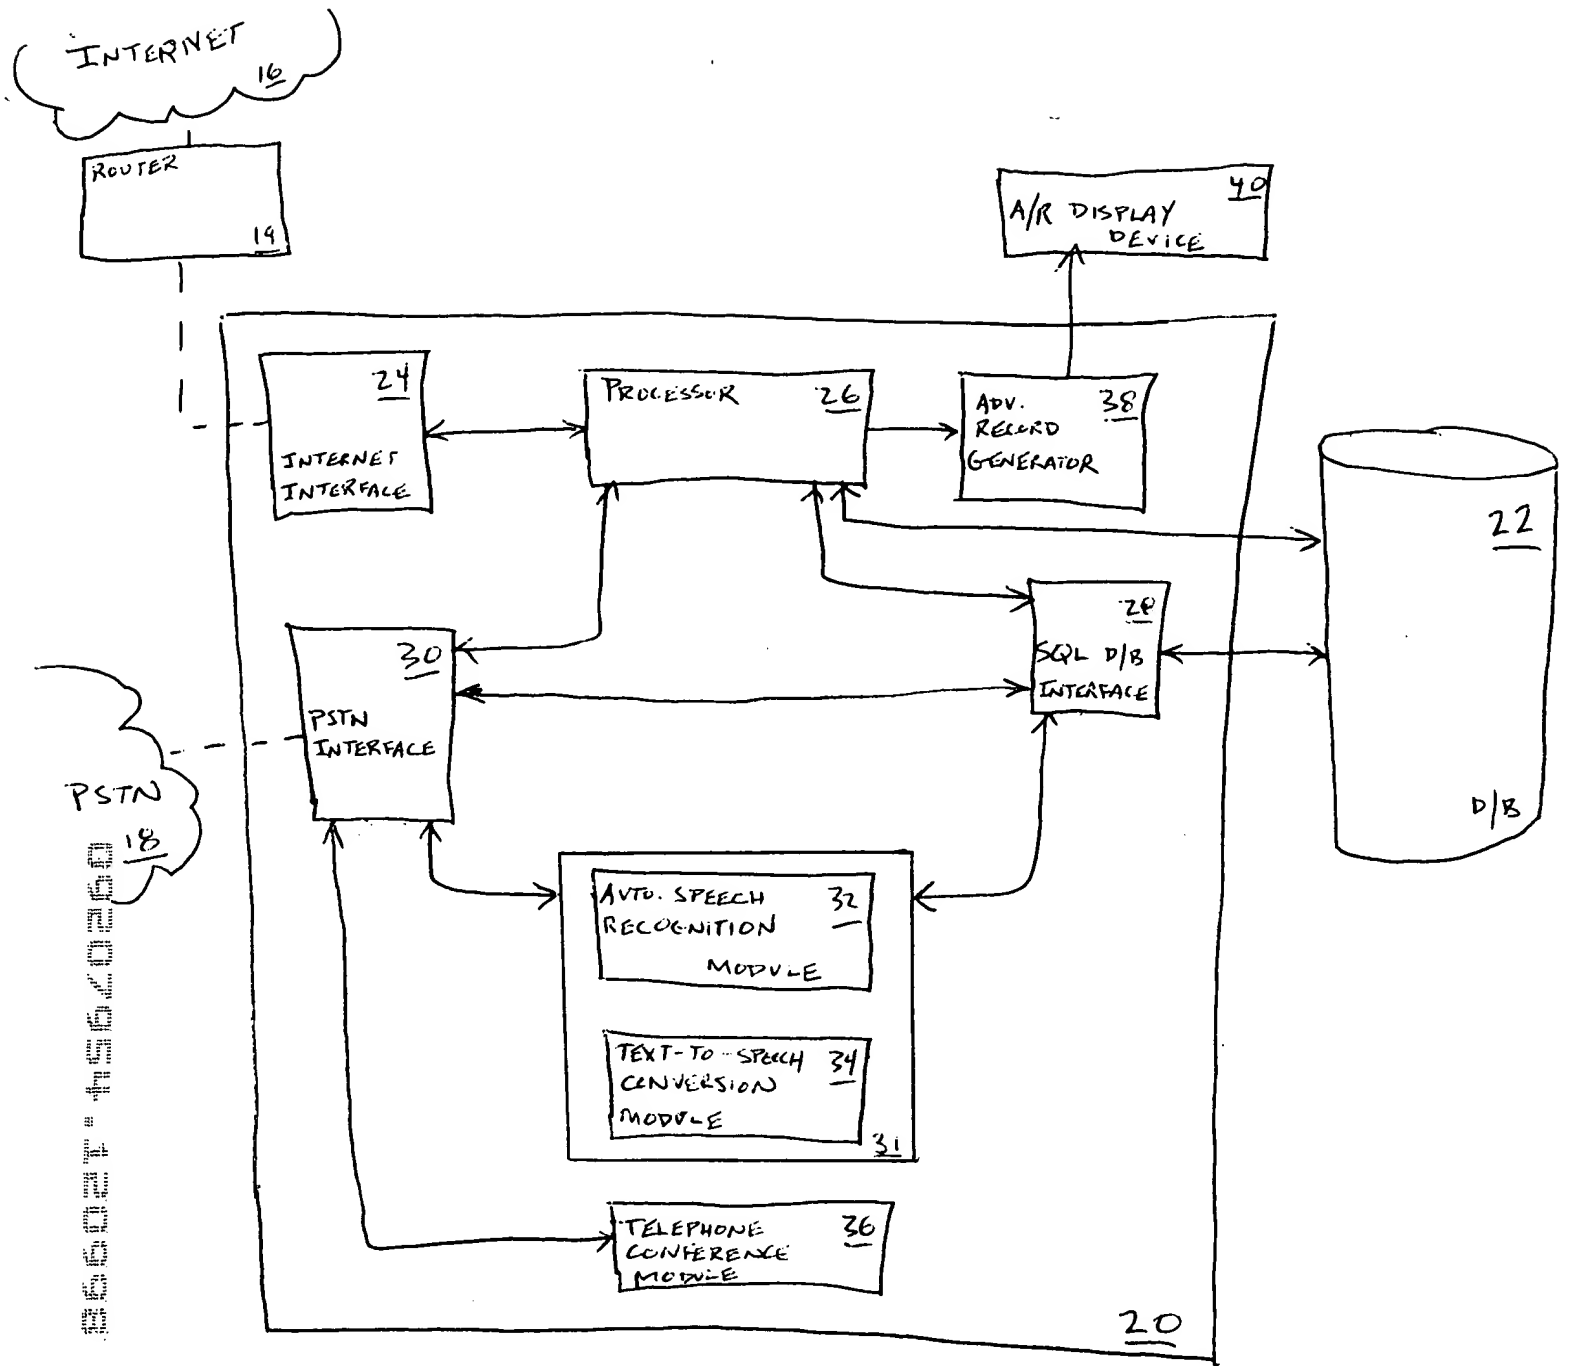 INTERNET
16
ROUTER
19
40
A/R DISPLAY
DEVICE
24
INTERNET
INTERFACE
PROCESSOR 26
ADV. 38
RECORD
GENERATOR
22
D/B
28
SQL D/B
INTERFACE
30
PSTN
INTERFACE
PSTN
18
AUTO. SPEECH 32
RECOGNITION
MODULE
TEXT-TO-SPEECH 34
CONVERSION
MODULE
31
TELEPHONE 36
CONFERENCE
MODULE
20
09207954.120998